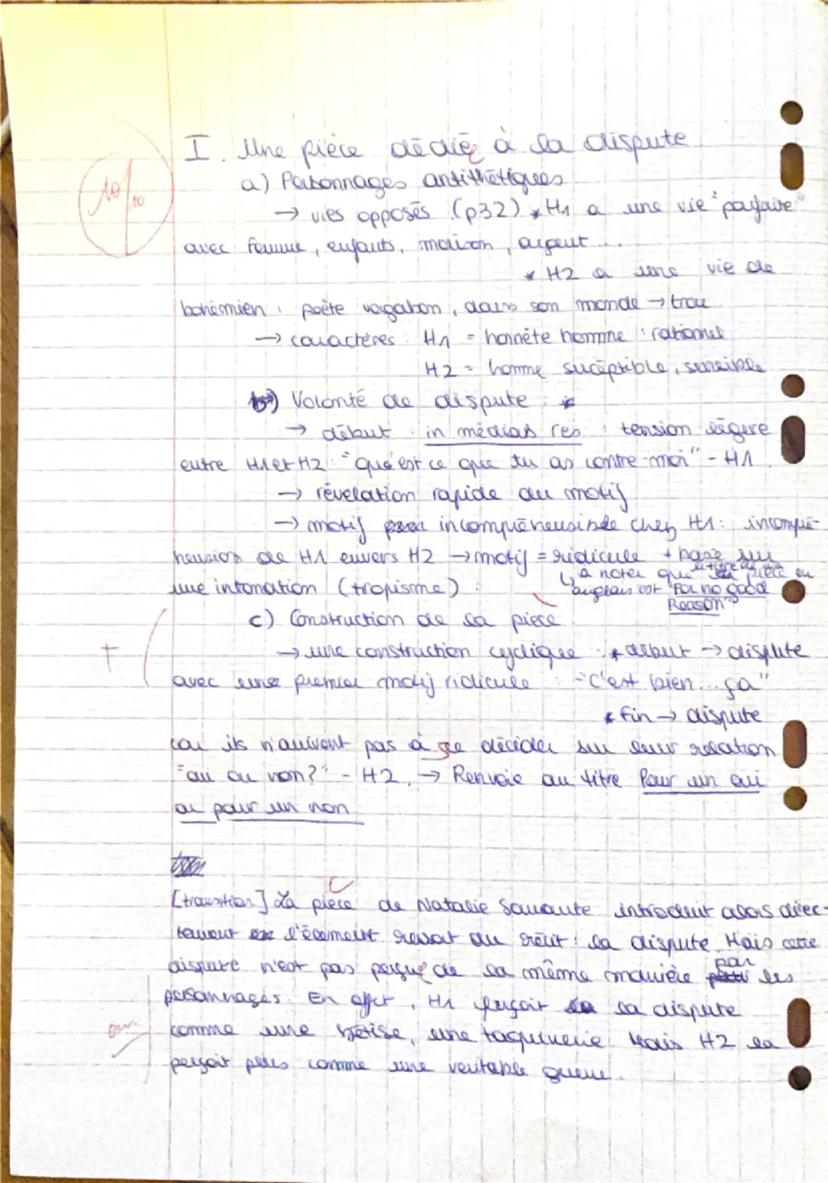 10/10
I. Une pièce dédiée à la dispute
a) Personnages antithétiques
→ vies opposés (p32) * H1 a une vie "parfaite"
avec femme, enfants, maison, argent...
* H2 a une vie de
bohémien : poète vagabon, dans son monde → trou
→ caractères : H1 = honnête homme : rationnel
H2 = homme suceptible, sensible
b) Volonté de dispute :
→ début in médias res : tension légère
entre H1 et H2 : "qu'est ce que tu as contre moi" - H1
→ révélation rapide du motif
→ motif incompréhensible chez H1 : incompré-
hension de H1 envers H2 → motif = ridicule + basé sur
une intonation (tropisme)
↳ à noter que le titre de la pièce en
anglais est "For no good
Reason"
c) Construction de la pièce
+
→ une construction cyclique : * début → dispute
avec une premier motif ridicule : "C'est bien... ça"
* fin → dispute
car ils n'arrivent pas à se décider sur leur relation
"oui ou non ?" - H2. → Renvoie au titre Pour un oui
ou pour un non
[transition] La pièce de Natalie Sarraute introduit alors direc-
tement l'élément du récit : la dispute. Mais cette
dispute n'est pas perçue de la même manière par les
personnages. En effet, H1 perçoit la dispute
comme une bêtise, une taquinerie. Mais H2 la
perçoit plus comme une véritable guerre.